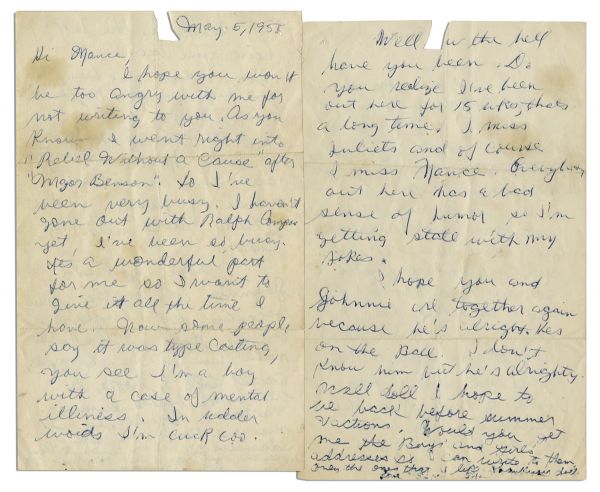 May 5, 1955
Hi Nance,
I hope you won't
be too angry with me for
not writing to you. As you
know I went right into
"Rebel Without a Cause" after
"Major Benson". So I've
been very busy. I haven't
gone out with Ralph
yet, I've been so busy.
Its a wonderful part
for me so I want to
give it all the time I
have. Now some people
say it was type casting,
you see I'm a boy
with a case of mental
illness. In udder
woids I'm cuck coo.
Well w the hell
have you been. Do
you realize I've been
out here for 15 wks, thats
a long time. I miss
Juliets and of course
I miss Nance. Everybody
out here has a bad
sense of humor, so I'm
getting stale with my
jokes.
I hope you and
Johnnie are together again
because he's alright. Hes
on the Ball. I don't
know him but he's alrighty.
Well doll I hope to
be back before summer
vactions. Would you get
me the Boys' and girls
addresses so I can write to them
only the ones that I like.